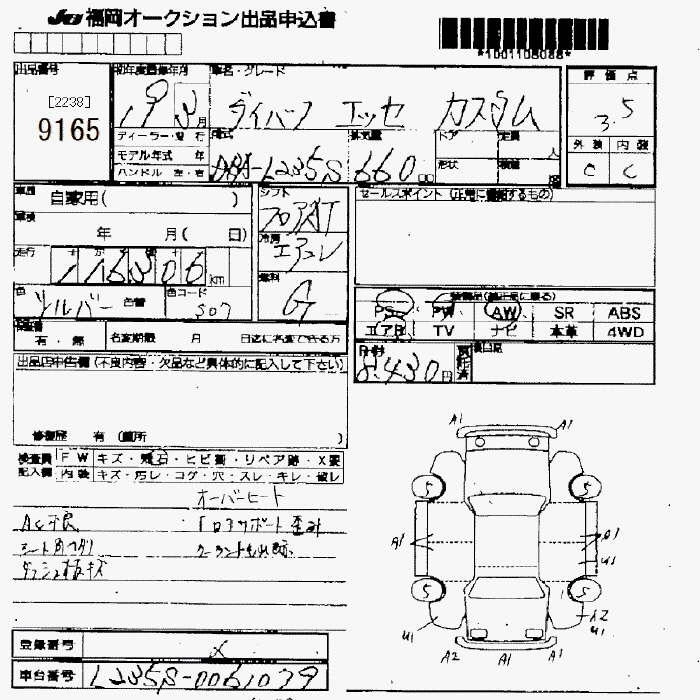 JU 福岡オークション出品申込書
*1001108088*
出品番号 初年度登録年月 車名・グレード 評価点
[2238]
9165
19 3 月 エッセ カスタム 3.5
ディーラー・並行 型式 排気量 ドア 定員 外装 内装
モデル年式 年 形状 積載
ハンドル 左・右 DBA-L235S 660 C C
車歴 自家用( ) シフト フロアAT セールスポイント (正常に機能するもの)
車検 年 月( 日) 冷房 エアコン
走行 116306 km 燃料 G
色 シルバー 色替 色コード S07
装備品(純正品に限る)
PS PW AW SR ABS
エアB TV ナビ 本革 4WD
有・無 名変期限 月 日迄に名変できる方
8,430円
出品店申告欄 (不良内容・欠品など具体的に記入して下さい)
修復歴 有 (箇所 )
検査員 FW キズ・飛石・ヒビ割・リペア跡・X要
記入欄 内装 キズ・汚レ・コゲ・穴・スレ・キレ・破レ
オーバーヒート
AC不良 コアサポート歪み
ダッシュ板キズ
A1 A1
5 5
A1 U1
5 5
U1 A2 U1
A2 A1 A1
登録番号 X
車台番号 L235S-0061039